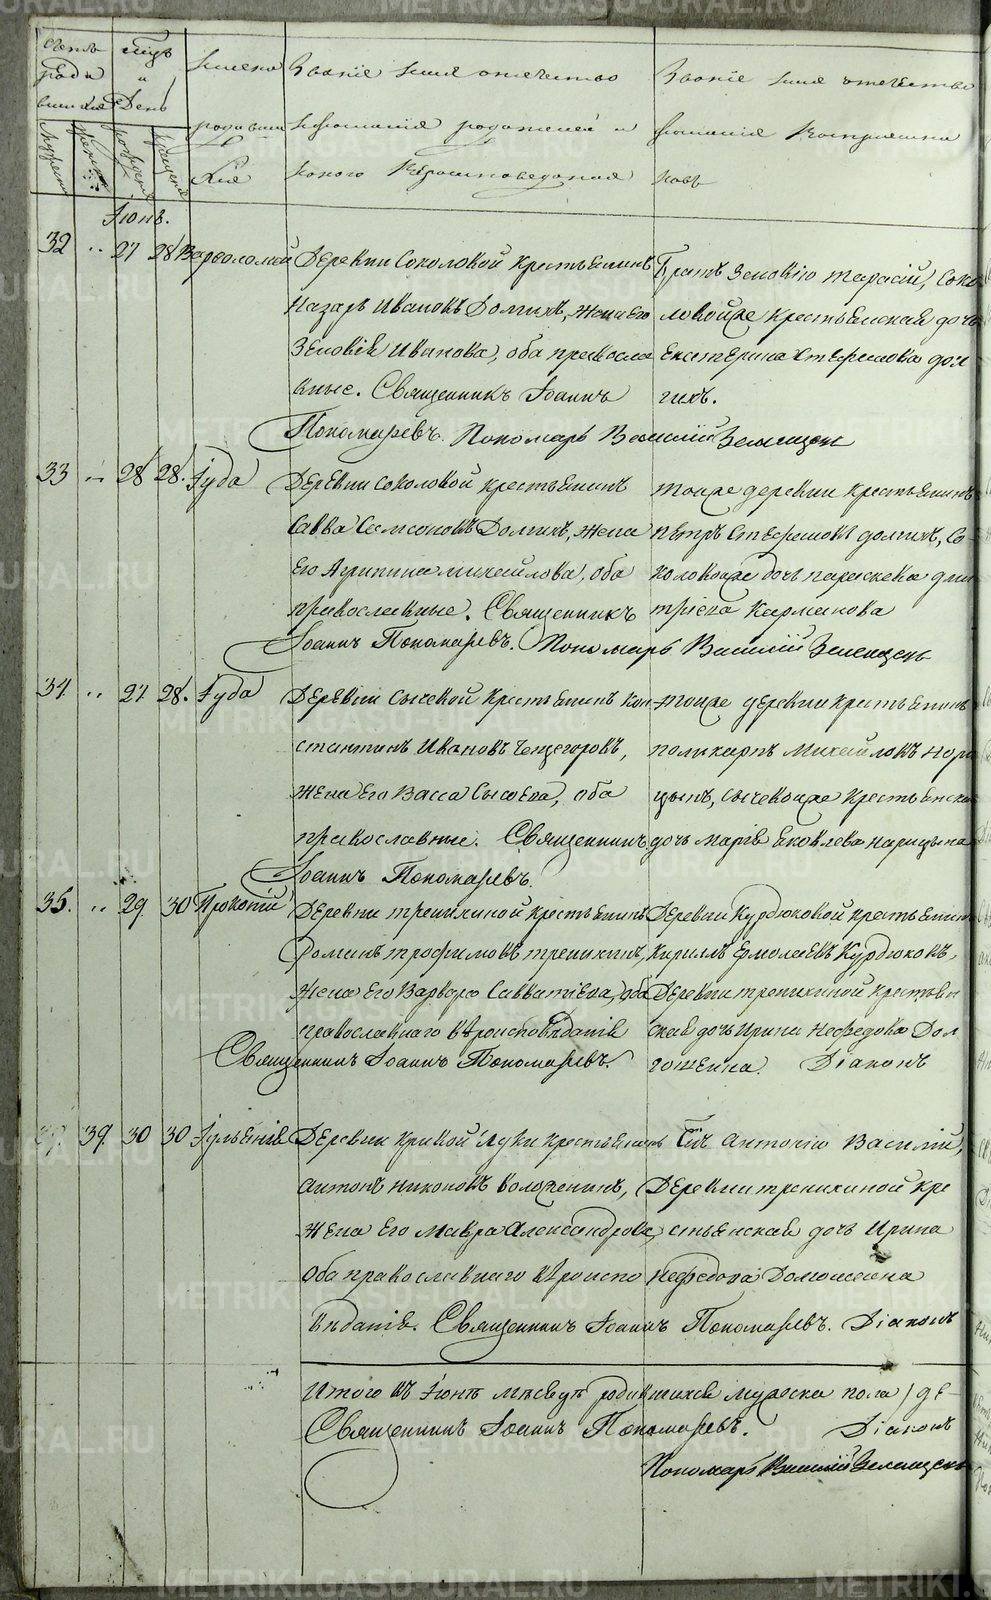 Счетъ родившихся
Мѣсяцъ и День
Имена родившихся
Званіе имя отечество
и фамилія родителей и
какого вѣроисповеданія
Званіе имя отечество
фамилія воспріемни
ковъ
Іюнь.
32 27 28 Варѳоломей
Деревни Соколовой крестьянинъ
Назаръ Ивановъ Долгихъ, жена его
Зеновія Иванова, оба правосла
вные. Священникъ Іоаннъ
Пономаревъ. Пономарь Василий
Братъ Зеновію Тарасій, Соко
ловойже крестьянская дочь
Екатерина Стефанова Дол
гихъ.
33 28 28. Іуда
Деревни Соколовой крестьянинъ
Савва Самсоновъ Долгихъ, жена
Его Агрипина Михайлова, оба
православные. Священникъ
Іоаннъ Пономаревъ. Пономарь Василий
тоиже деревни крестьянинъ
Петръ Стефановъ Долгихъ, Со
коловойже дочь Параскева Дми
тріева Карманова
34 27 28. Іуда
Деревни Сычевой крестьянинъ Кон
стантинъ Ивановъ
жена Его Васса Сысоева, оба
православные. Священникъ
Іоаннъ Пономаревъ.
тоиже деревни крестьянинъ
Поликарпъ Михайловъ Нари
цынъ, Сычевойже крестьянская
дочь Марія Яковлева Нарицына
35. 29. 30 Прокопій
Деревни Трепихиной крестьянинъ
Трофимовъ Трепихинъ,
жена Его Варвара Савватіева, оба
православнаго вѣроисповѣданія
Священникъ Іоаннъ Пономаревъ.
Деревни Курдюковой крестьянинъ
Кирилъ Ермолаевъ Курдюковъ,
Деревни Трепихиной крестьян
ская дочь Ирина Нефедова Дол
Діаконъ
39. 30 30 Іуліанія
Деревни Кривой Луки крестьянинъ
Антонъ Никоновъ Воложенинъ,
жена Его Мавра Александрова
оба православнаго вѣроиспо
вѣданія. Священникъ Іоаннъ Пономаревъ. Діаконъ
Антонію Василий,
Деревни Трепихиной кре
стьянская дочь Ирина
Нефедова
Итого въ Іюнѣ мѣсяцѣ родившихся мужеска пола
Священникъ Іоаннъ Пономаревъ. Діаконъ
Пономарь Василий
METRIKI.GASO-URAL.RU